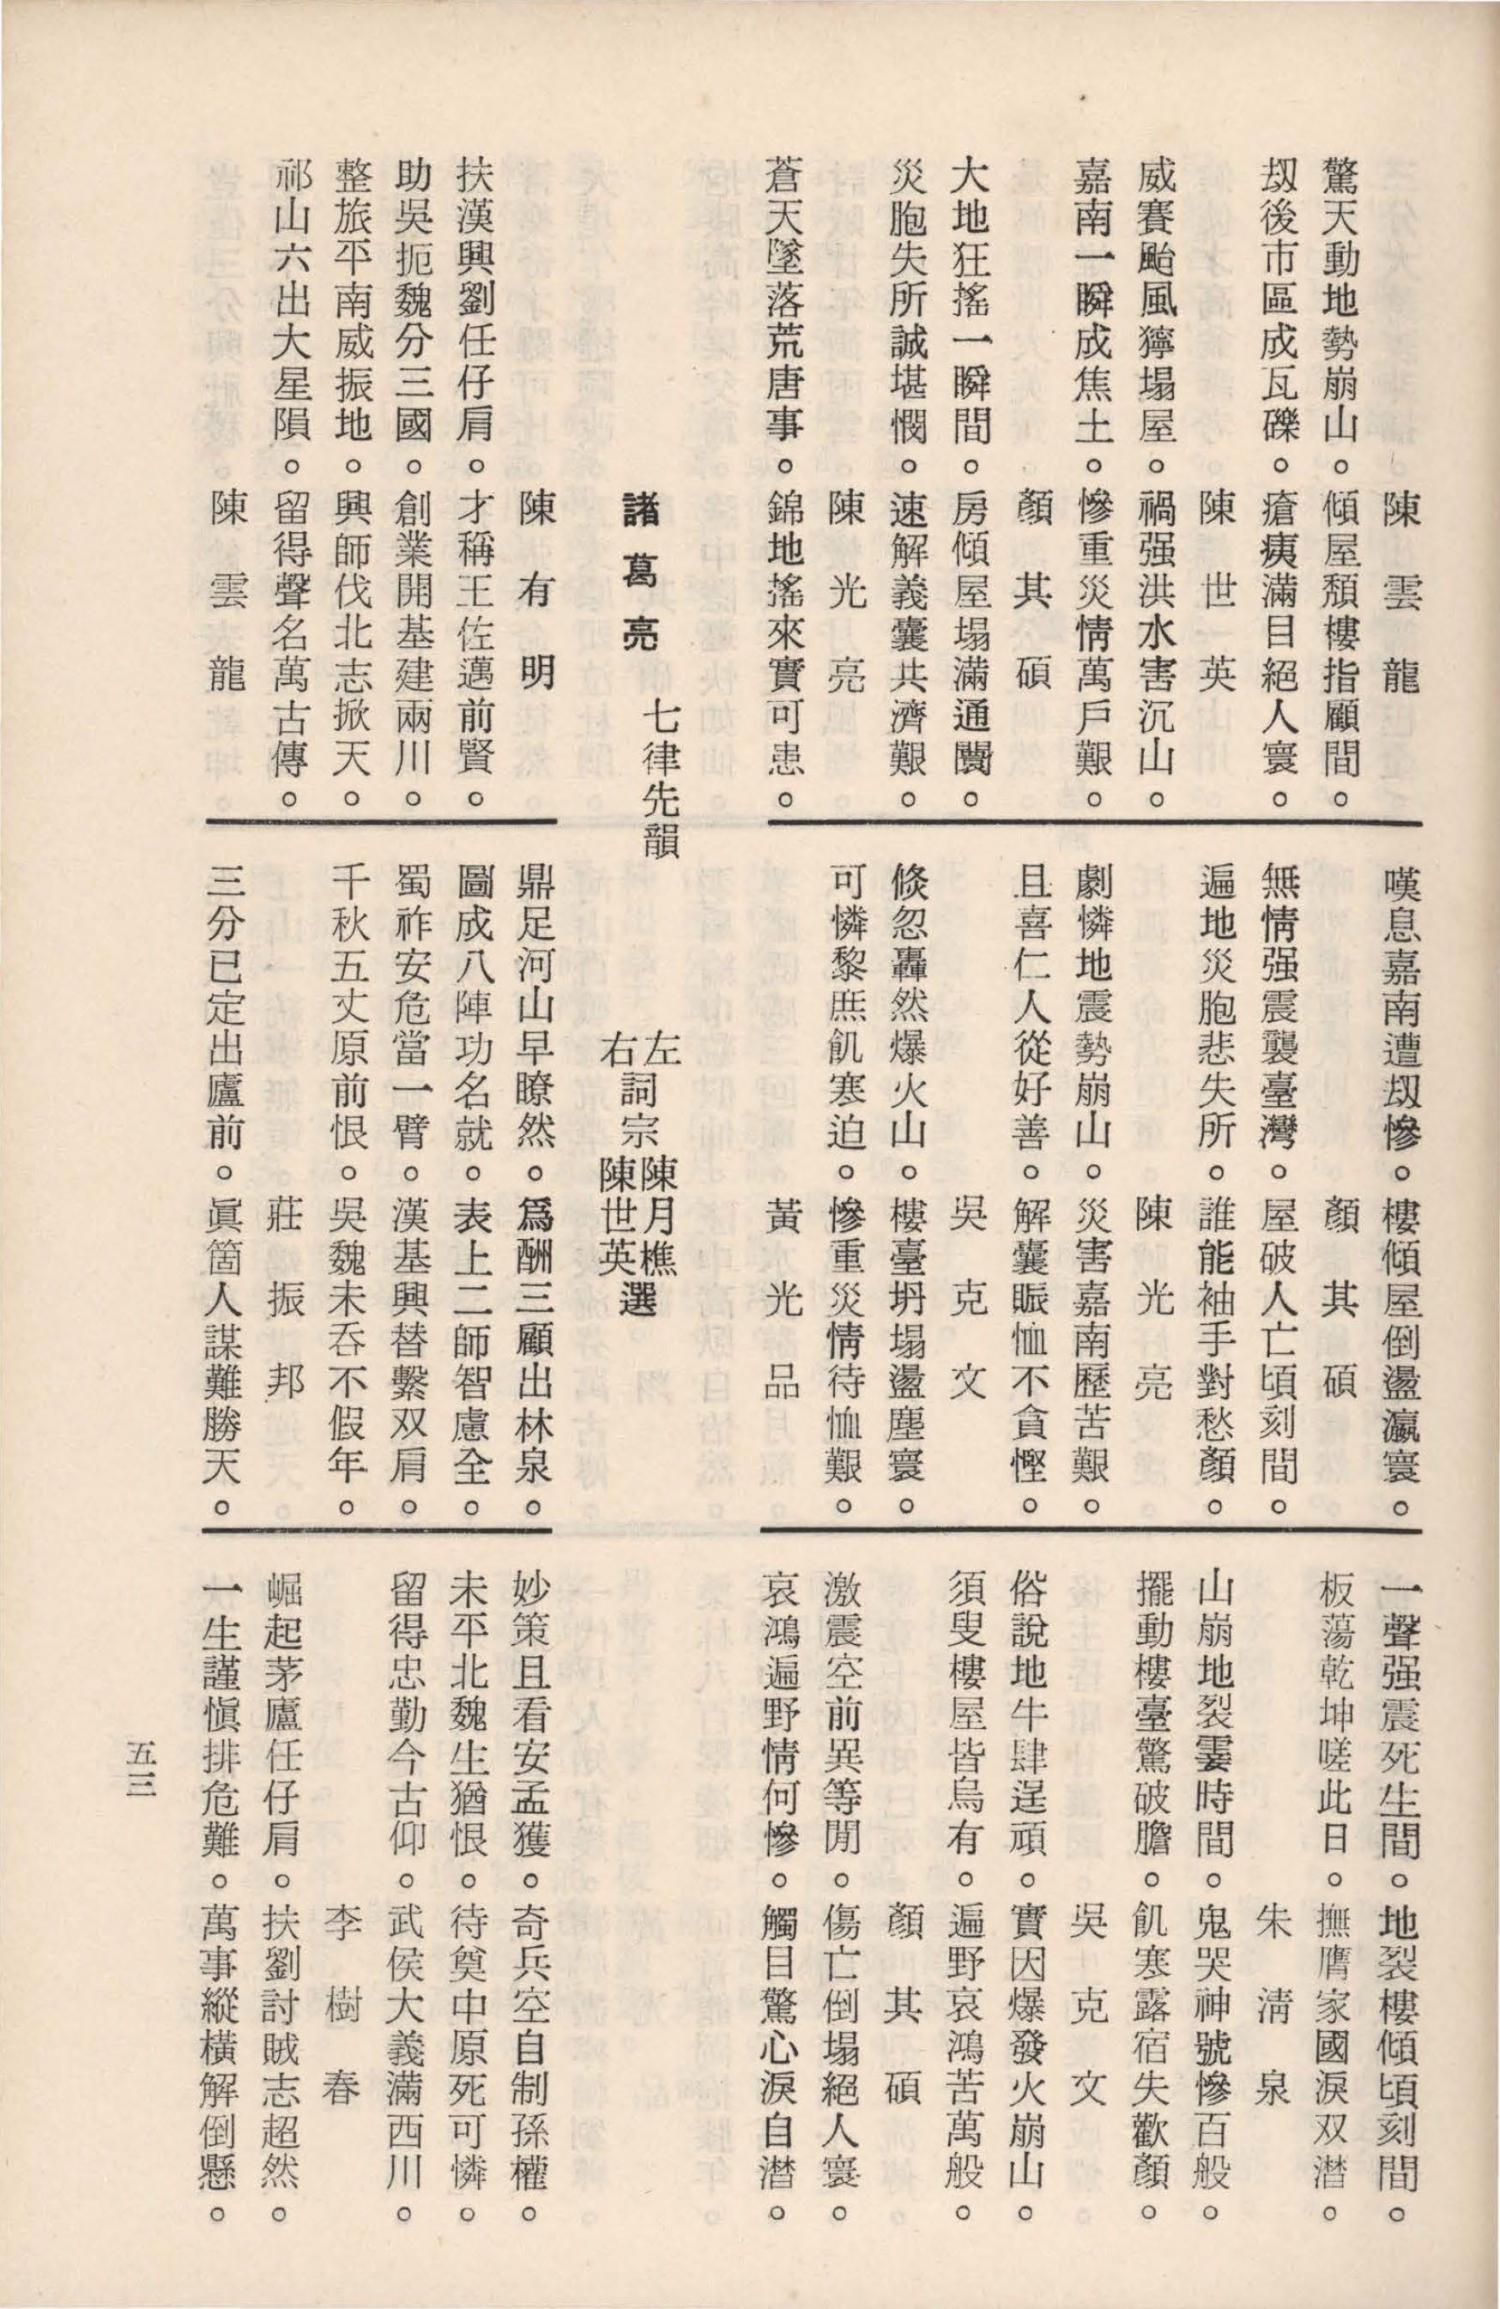 陳雲龍
驚天動地勢崩山。傾屋頹樓指顧間。
刼後市區成瓦礫。瘡痍滿目絕人寰。
陳世英
威賽颱風獰塌屋。禍强洪水害沉山。
嘉南一瞬成焦土。慘重災情萬戶艱。
顏其碩
大地狂搖一瞬間。房傾屋塌滿通闤。
災胞失所誠堪憫。速解義囊共濟艱。
陳光亮
蒼天墜落荒唐事。錦地搖來實可患。
嘆息嘉南遭刼慘。樓傾屋倒盪瀛寰。
顏其碩
無情强震襲臺灣。屋破人亡頃刻間。
遍地災胞悲失所。誰能袖手對愁顏。
陳光亮
劇憐地震勢崩山。災害嘉南歷苦艱。
且喜仁人從好善。解囊賑恤不貪慳。
吳克文
倐忽轟然爆火山。樓臺坍塌盪塵寰。
可憐黎庶飢寒迫。慘重災情待恤艱。
黃光品
一聲强震死生間。地裂樓傾頃刻間。
板蕩乾坤嗟此日。撫膺家國淚双潸。
朱淸泉
山崩地裂霎時間。鬼哭神號慘百般。
擺動樓臺驚破膽。飢寒露宿失歡顏。
吳克文
俗說地牛肆逞頑。實因爆發火崩山。
須叟樓屋皆烏有。遍野哀鴻苦萬般。
顏其碩
激震空前異等閒。傷亡倒塌絕人寰。
哀鴻遍野情何慘。觸目驚心淚自潸。
諸葛亮　七律先韻
左詞宗陳月樵選
右詞宗陳世英選
陳有明
扶漢興劉任仔肩。才稱王佐邁前賢。
助吳扼魏分三國。創業開基建兩川。
整旅平南威振地。興師伐北志掀天。
祁山六出大星隕。留得聲名萬古傳。
陳雲龍
鼎足河山早瞭然。爲酬三顧出林泉。
圖成八陣功名就。表上二師智慮全。
蜀祚安危當一臂。漢基興替繫双肩。
千秋五丈原前恨。吳魏未吞不假年。
莊振邦
三分已定出廬前。眞箇人謀難勝天。
妙策且看安孟獲。奇兵空自制孫權。
未平北魏生猶恨。待奠中原死可憐。
留得忠勤今古仰。武侯大義滿西川。
李樹春
崛起茅廬任仔肩。扶劉討賊志超然。
一生謹愼排危難。萬事縱橫解倒懸。
五三